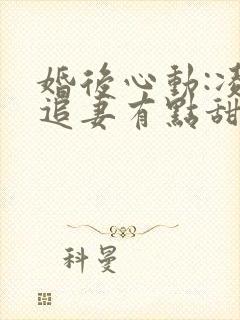 婚後心動:凌
追妻有點甜
科曼